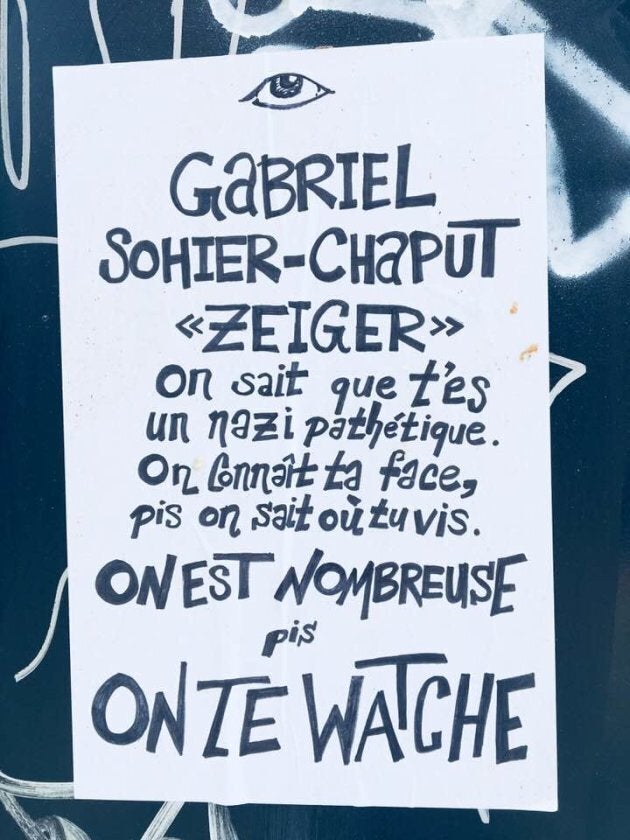 GaBRIEL
SOHIER-CHaPUT
«ZEIGER»
On sait que t'es
un nazi pathétique.
On Connaît ta face,
pis on sait où tu vis.
ON EST NOMBREUSE
pis
ON TE WATCHE